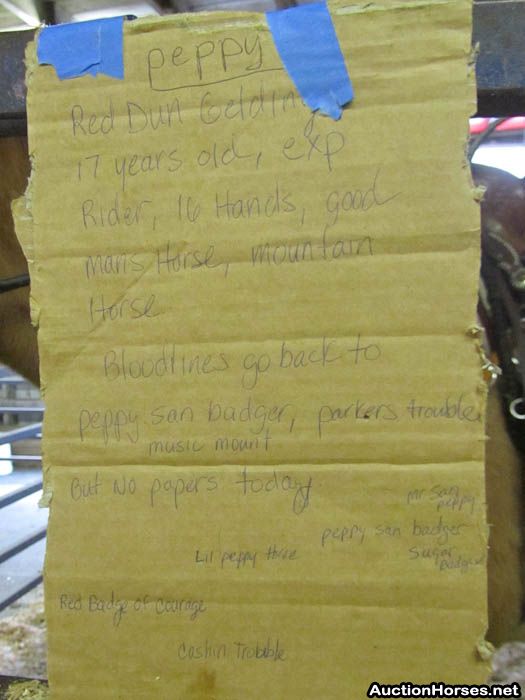 peppy
Red Dun Gelding
17 years old, exp
Rider, 16 Hands, good
mans Horse, mountain
Horse
Bloodlines go back to
peppy san badger, parkers trouble,
music mount
But No papers today
mr san
peppy
peppy san badger
Sugar
badger
Lil peppy three
Red Badge of Courage
Cashin Trouble
AuctionHorses.net